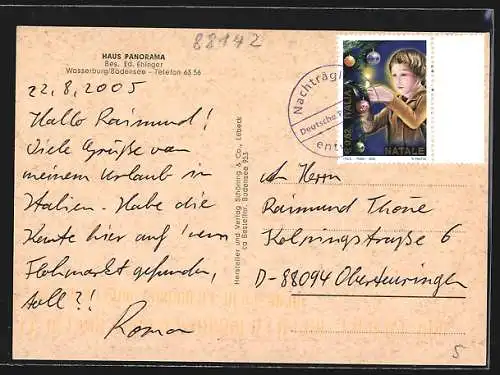 88142
HAUS PANORAMA
Bes. Ed. Ehinger
Wasserburg/Bodensee - Telefon 65 56
22.8.2005
Hallo Raimund!
Viele Grüße von
meinem Urlaub in
Italien. Habe die
Karte hier auf 'nem
Flohmarkt gefunden,
toll?!
Roman
Hersteller und Verlag Schöning & Co., Lübeck
ca Bestellnr. Bodensee 953
Nachträgl
Deutsche P
entw
ITALIA
€ 0,62
NATALE
An Herrn
Raimund Thöne
Kolpingstraße 6
D-88094 Oberteuringen
5